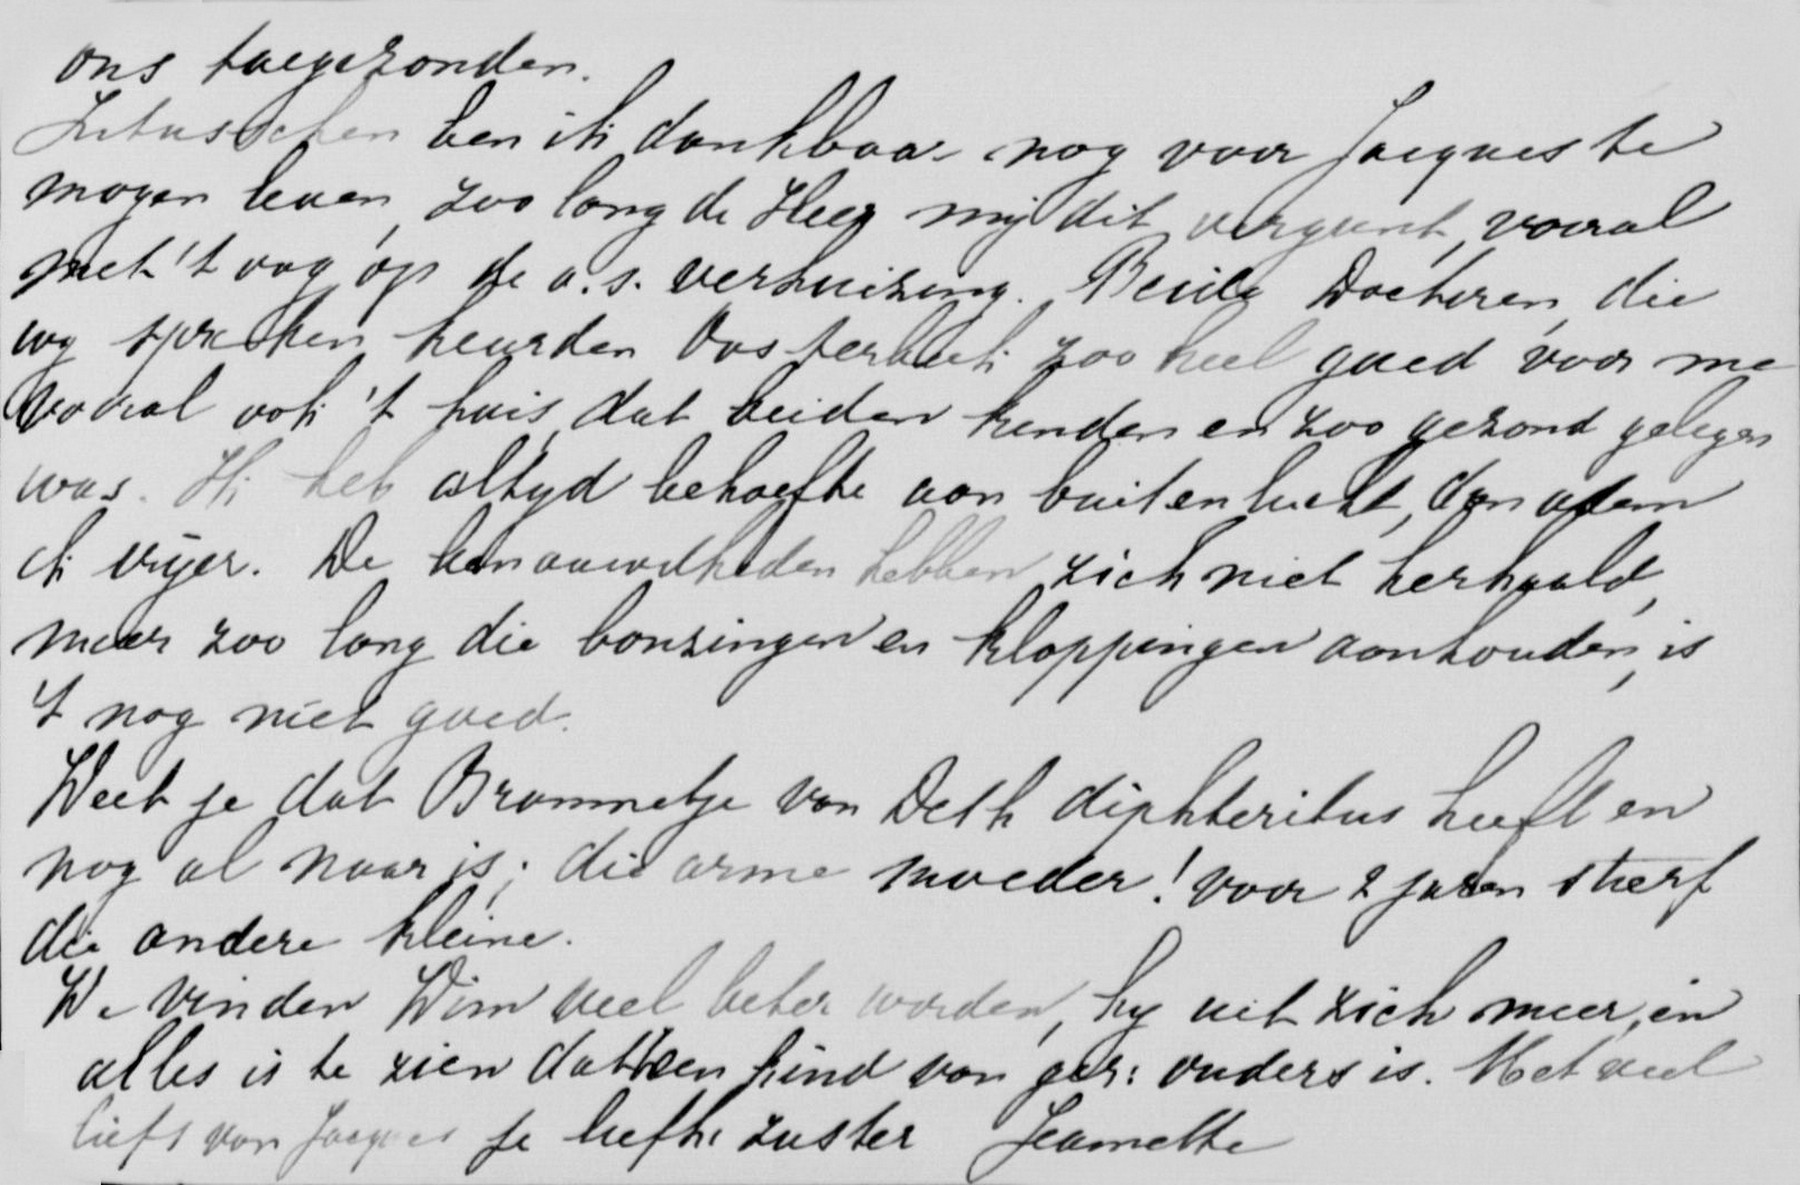 ons toegezonden.
Intusschen ben ik dankbaar nog voor Jacques te
mogen leven, zoo lang de Heer mij dit vergunt, vooral
met 't oog op de a.s. verhuizing. Beide Doctoren, die
wy spreken keurden Oosterbeek zoo heel goed voor me
vooral ook 't huis, dat beiden kenden en zoo gezond gelegen
was. Ik heb altyd behoefte aan buitenlucht, dan adem
ik vrijer. De benauwdheden hebben zich niet herhaald,
maar zoo lang die bonzingen en kloppingen aanhouden, is
't nog niet goed.
Weet je dat Brammetje van Deth diphteritus heeft en
nog al naar is; die arme moeder! voor 2 jaren stierf
die andere kleine.
We vinden Wim veel beter worden, hy uit zich meer, in
alles is te zien dat 't een kind van ger: ouders is. Met veel
liefs van Jacques je liefh. zuster Jeannette